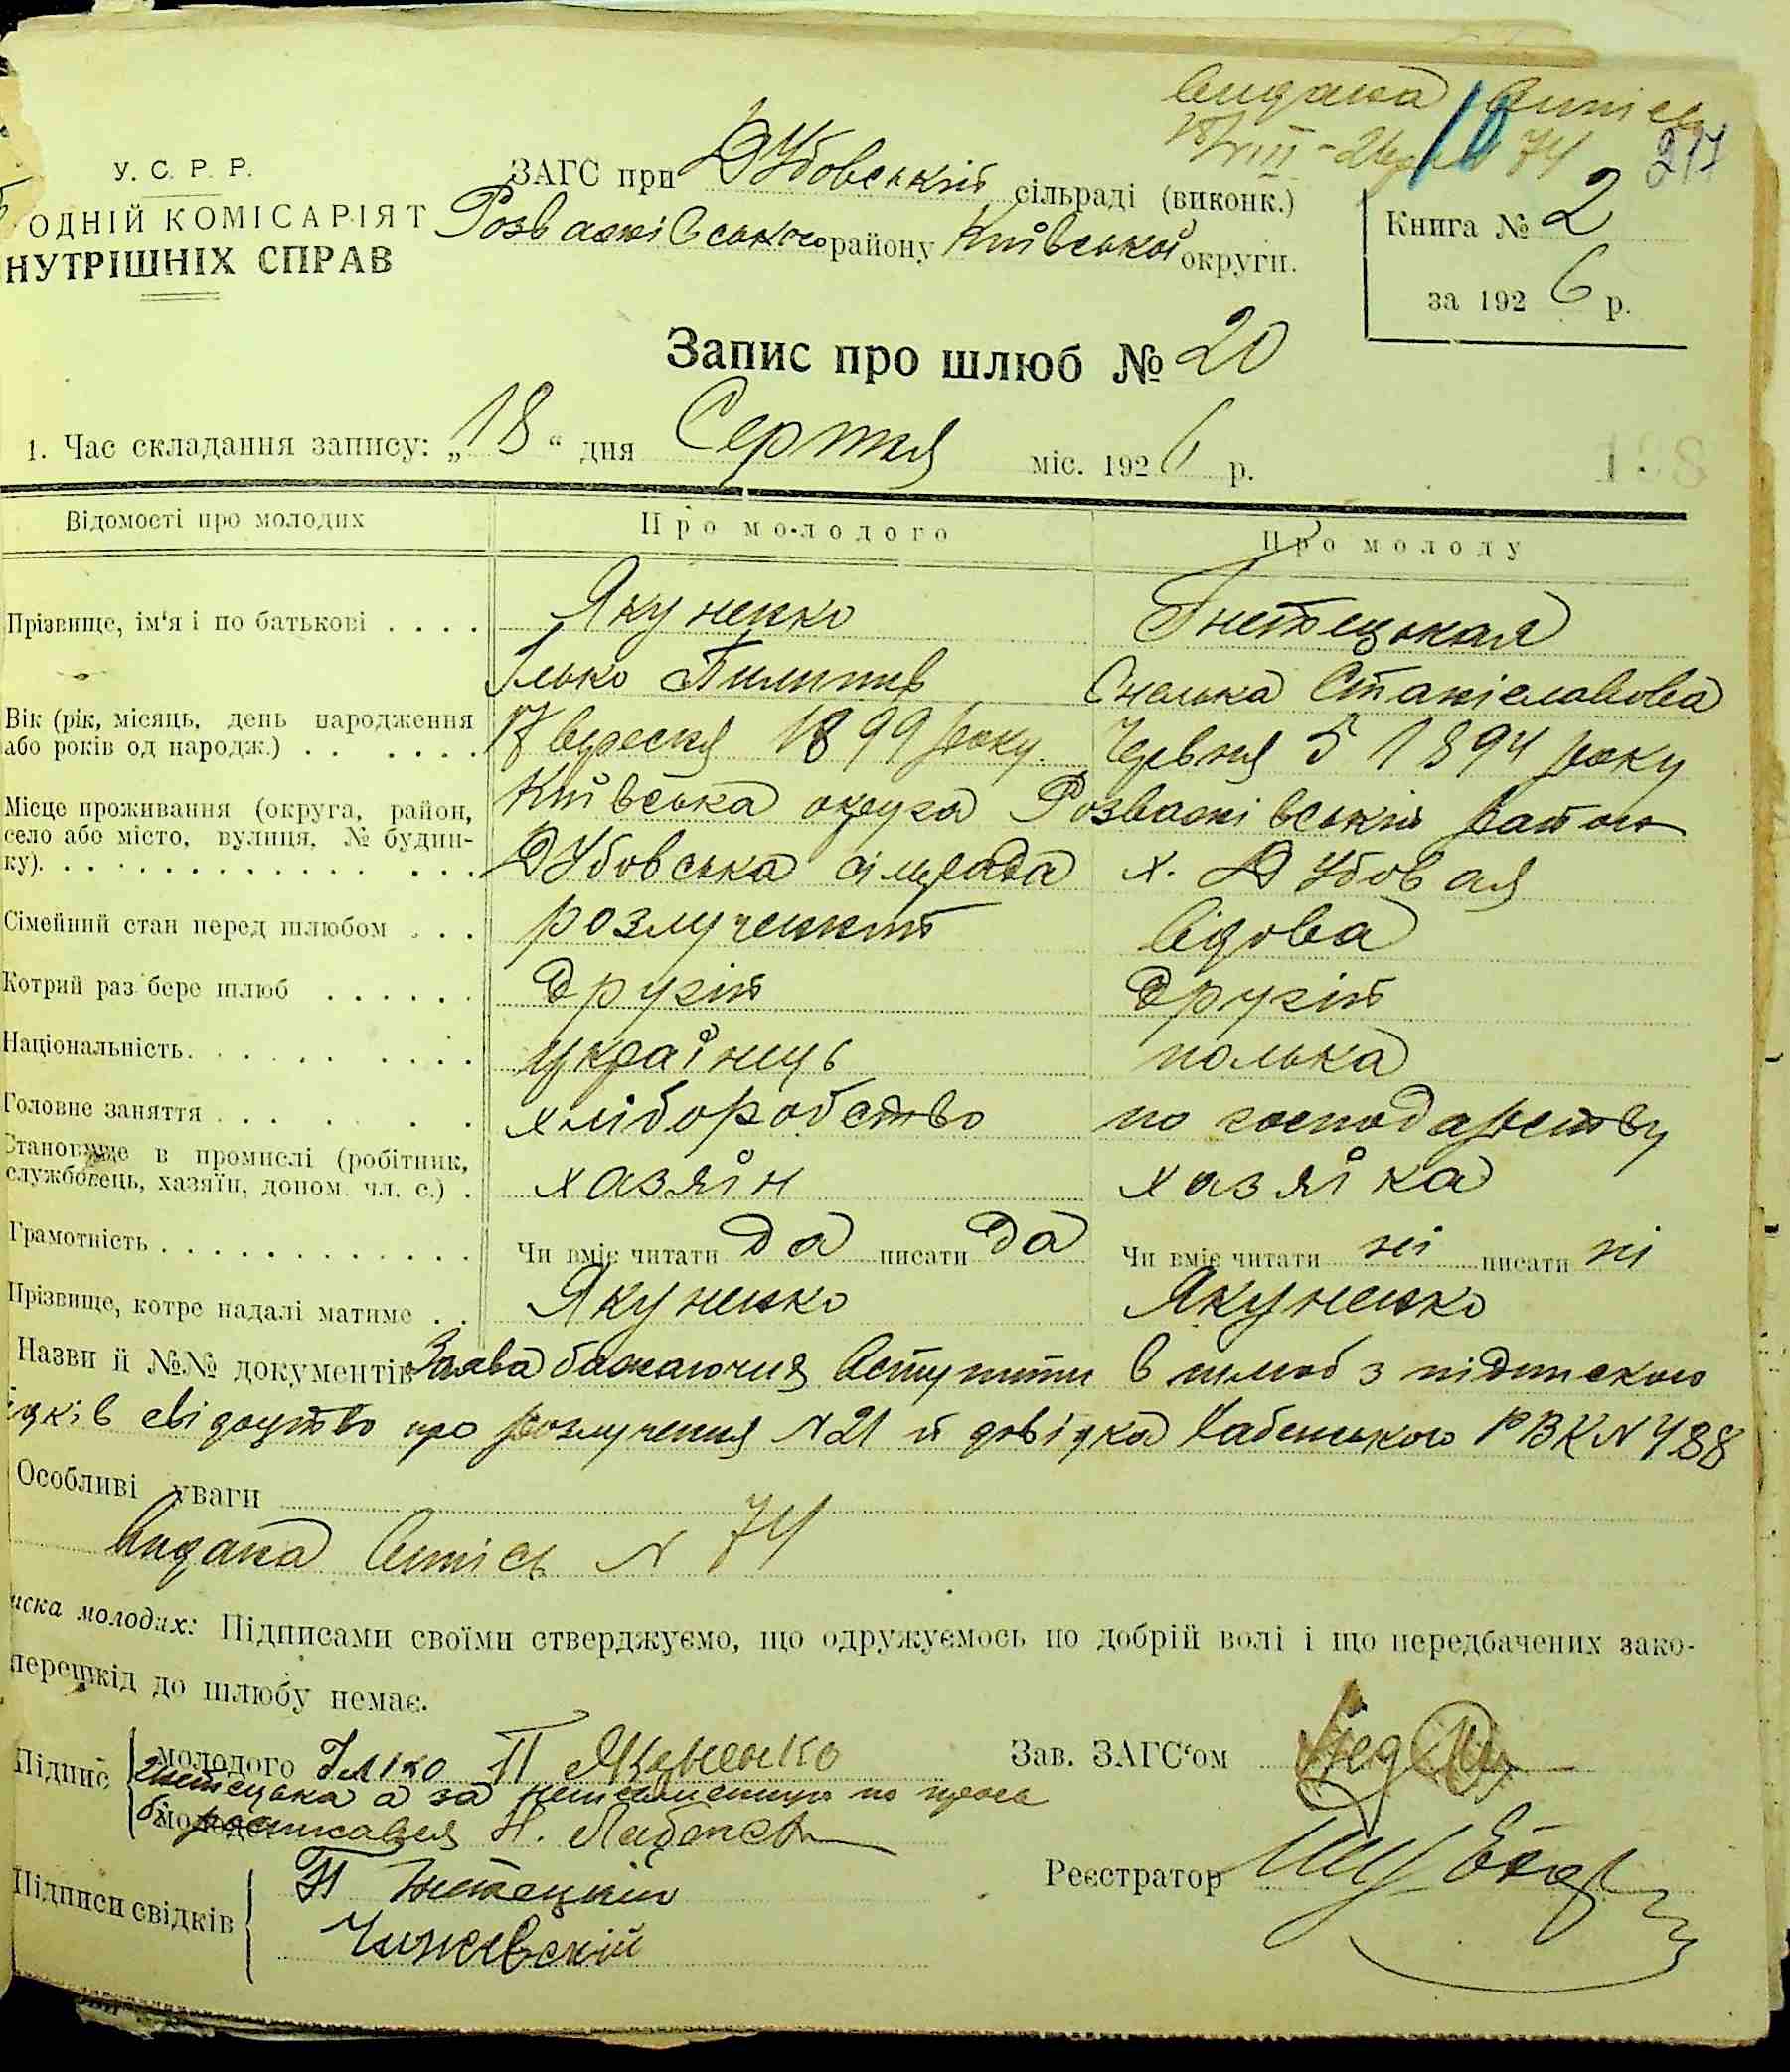 Видана Випись
10
18/VIII-26 74 217
У. С. Р. Р.
ОДНІЙ КОМІСАРІЯТ
НУТРІШНІХ СПРАВ
ЗАГС при Дубовській сільраді (виконк.)
Розважівського району Київської округи.
Книга № 2
за 1926 р.
Запис про шлюб № 20
1. Час складання запису: „18“ дня Серпня міс. 1926 р.
198
Відомості про молодих Про молодого Про молоду
Прізвище, ім‘я і по батькові . . . . Якуненко Гнетецькая
Ілько Пилипів Станіславова
Вік (рік, місяць, день народження
або років од народж.) . . . . . . 17 вересня 1899 року. Червня 5 1894 року
Місце проживання (округа, район, Київська округа Розважівський район
село або місто, вулиця, № будин-
ку). . . . . . . . . . . . . . . Дубовська сільрада х. Дубовая
Сімейний стан перед шлюбом . . . розлученний вдова
Котрий раз бере шлюб . . . . . . другій другій
Національність. . . . . . . . . українець полька
Головне заняття . . . . . . хліборобство по господарству
Становище в промислі (робітник,
службовець, хазяїн, допом. чл. с.) . хазяїн хазяїка
Грамотність . . . . . . . . . . . . Чи вміє читати да писати да Чи вміє читати ні писати ні
Прізвище, котре надалі матиме . . Якуненко Якуненко
Назви й №№ документів Заява бажаючих вступити в шлюб з підпискою
ідків свідоцтво про розлучення N 21 й довідка РВК N 488
Особливі уваги
Видана Випись N 74
иска молодих: Підписами своїми стверджуємо, що одружуємось по добрій волі і що передбачених зако-
перешкід до шлюбу немає.
Підпис молодого Ілко П Якуненко Зав. ЗАГС‘ом
Гнетецька а за неписьменную по просьбі
молодої росписався Н.
Реєстратор
Підписи свідків П Гнетецкий
Чижевский